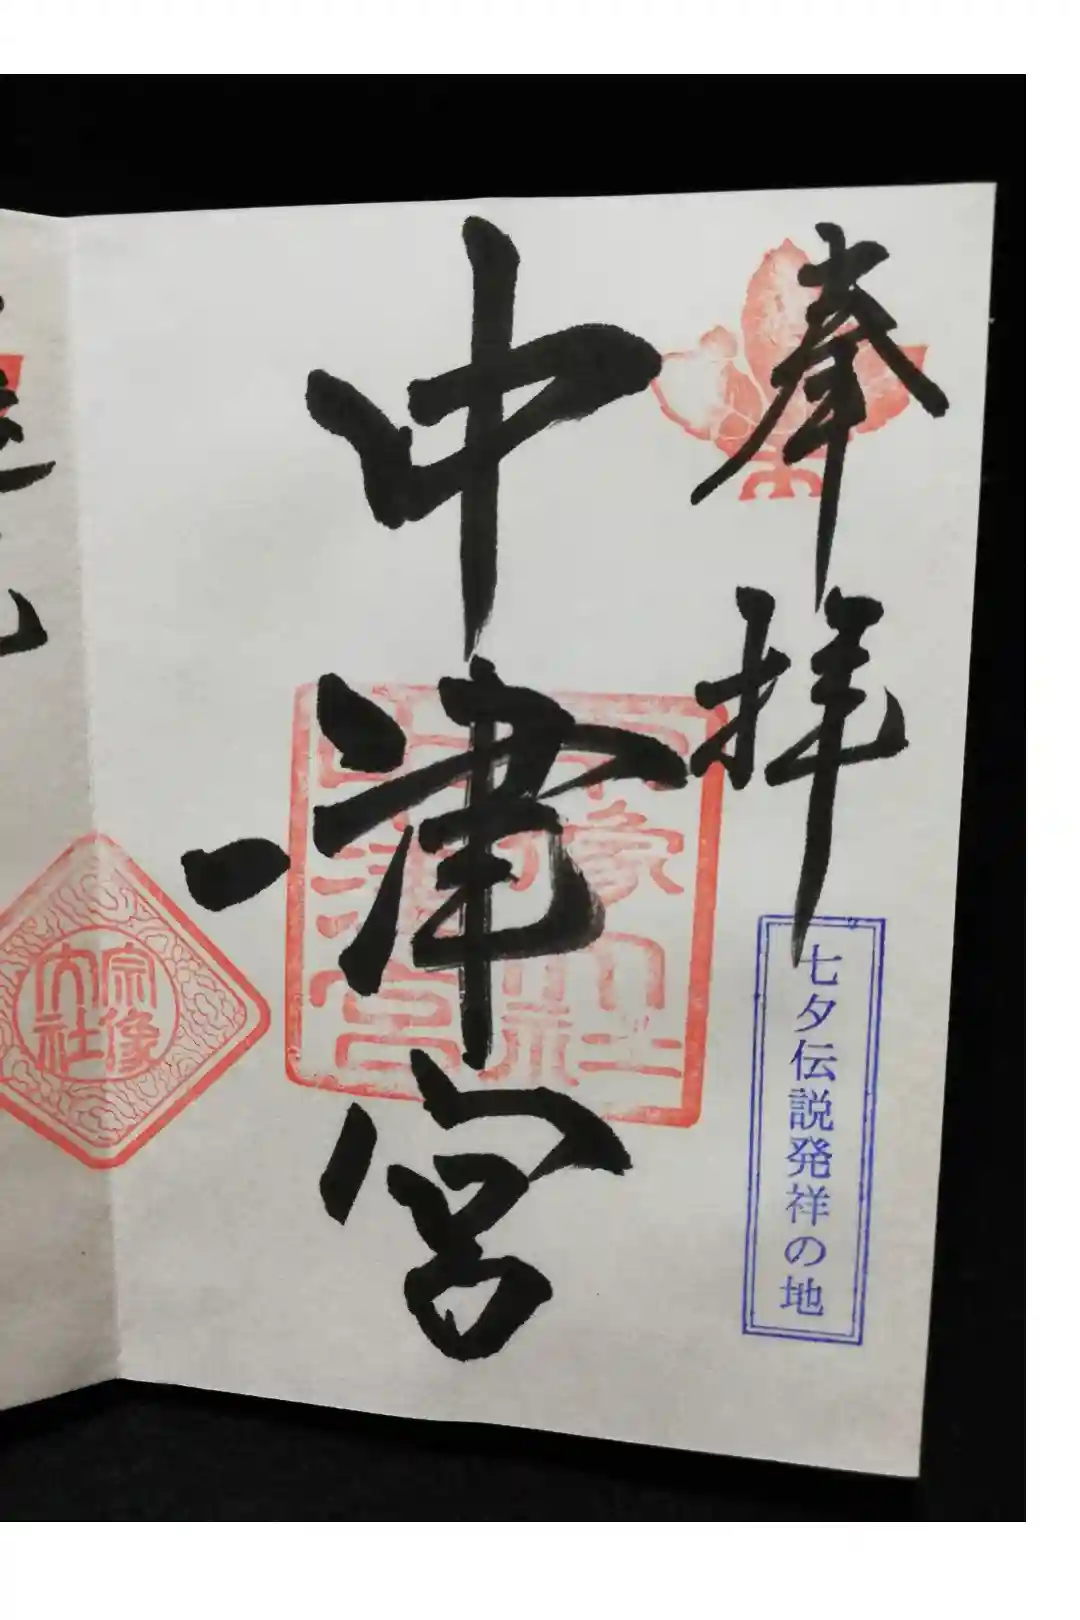 奉拝
七夕伝説発祥の地
中津宮
宗像
大社
中津宮
宗像
大社